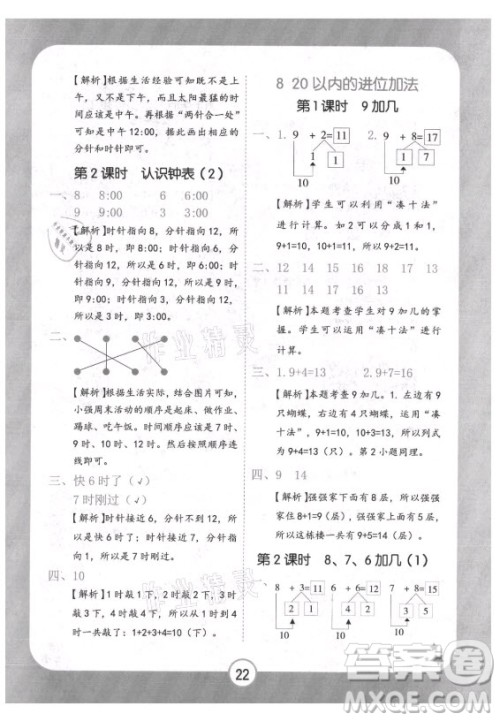 【解析】根据生活经验可知既不是上午,又不是下午,而且太阳最猛的时间应该是中午。再根据"两针合一处"可知是中午 12:00,即可找出分针和时针并连线。
第 2 课时 认识钟表(2)
一、 8 8:00 6 6:00
9 9:00 3 3:00
【解析】时针指向 8,分针指向 12,所以是 8 时,即 8:00;时针指向 6,分针指向 12,所以是 6 时,即 6:00;时针指向 9,分针指向 12,所以是 9 时,即 9:00;时针指向 3,分针指向 12,所以是 3 时,即 3:00。
二、
【解析】根据生活实际,结合图片可知,小强周末活动的顺序是起床、做作业、踢球、吃午饭。时间的顺序是 7 时、9 时、10 时、12 时。按照先后顺序连线即可。
三、 快 6 时了(√)
7 时刚过(√)
【解析】时针接近 6,分针不到 12,所以是快 6 时了;时针接近 7,分针刚过 12,所以是 7 时刚过。
四、 10
【解析】1 时敲 1 下,2 时敲 2 下,3 时敲 3 下,4 时敲 4 下,所以从 1 时到 4 时一共敲了:1+2+3+4=10(下)。
8 20 以内的进位加法
第 1 课时 9 加几
一、 1. 9 + 2= 11 2. 9 + 8= 17
1 1 1 7
10 10
【解析】学生可以利用"凑十法"进行计算。如:2 可以分成 1 和 1,9+1=10,10+1=11,所以 9+2=11。
二、 12 14 13 15 16 18 17 13
【解析】本题考查学生对 9 加几的掌握。学生可以运用"凑十法"进行计算。
三、 1. 9+4=13 2. 9+7=16
【解析】本题考查 9 加几。1. 左边有 9 只蝴蝶,右边有 4 只蝴蝶,根据"凑十法",先把 9 凑成 10,所以列式为 9+4=13(只)。第 2 小题同理。
四、 9 14
【解析】强强家下面有 8 层,所以强强家住在 9 层;强强家上面有 5 层,所以这栋楼一共有:9+5=14(层)。
第 2 课时 8、7、6 加几(1)
一、 8 + 3= 11
2 1
10
22
答案圈
MXQE.COM